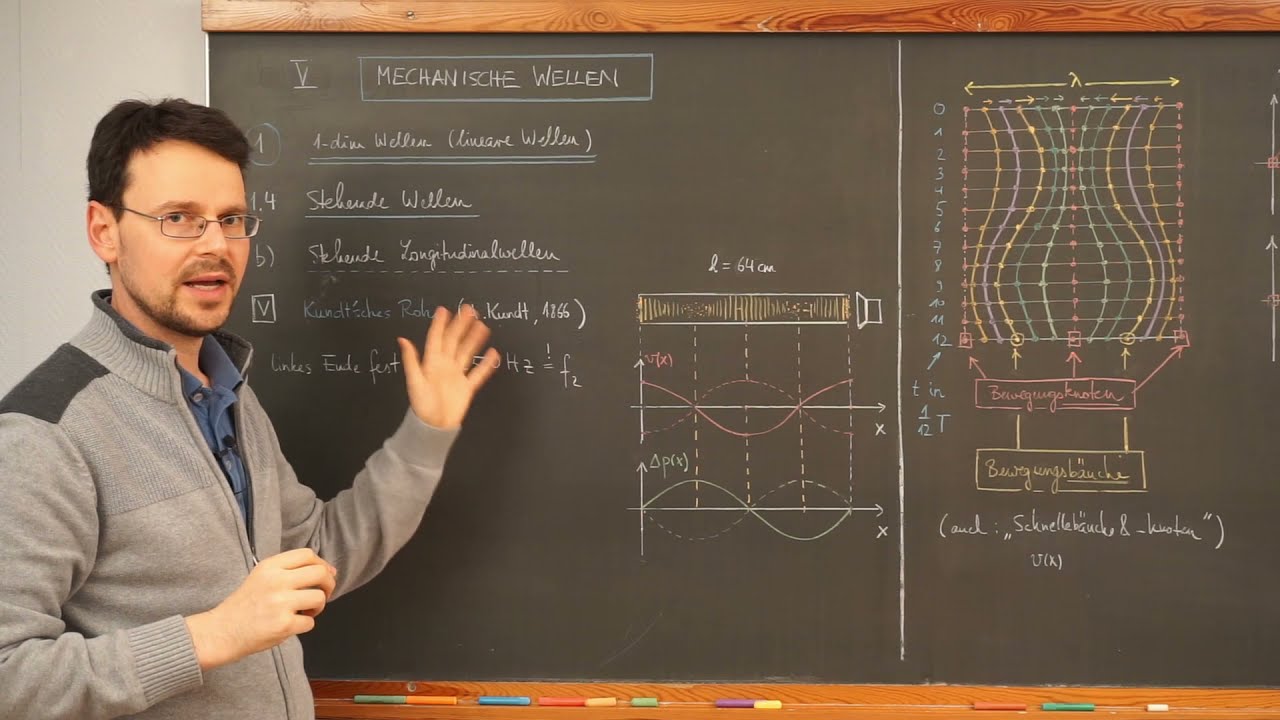 V MECHANISCHE WELLEN
1 1-dim Wellen (lineare Wellen)
1.4 Stehende Wellen
b) Stehende Longitudinalwellen
V Kundt'sches Roh (A. Kundt, 1866)
linkes Ende fest 0 Hz ! = f₂
l = 64 cm
v(x)
x
Δp(x)
x
λ
0
1
2
3
4
5
6
7
8
9
10
11
12
t in
1/12 T
Bewegungsknoten
Bewegungsbäuche
(auch: „Schnellebäuche & -knoten")
v(x)